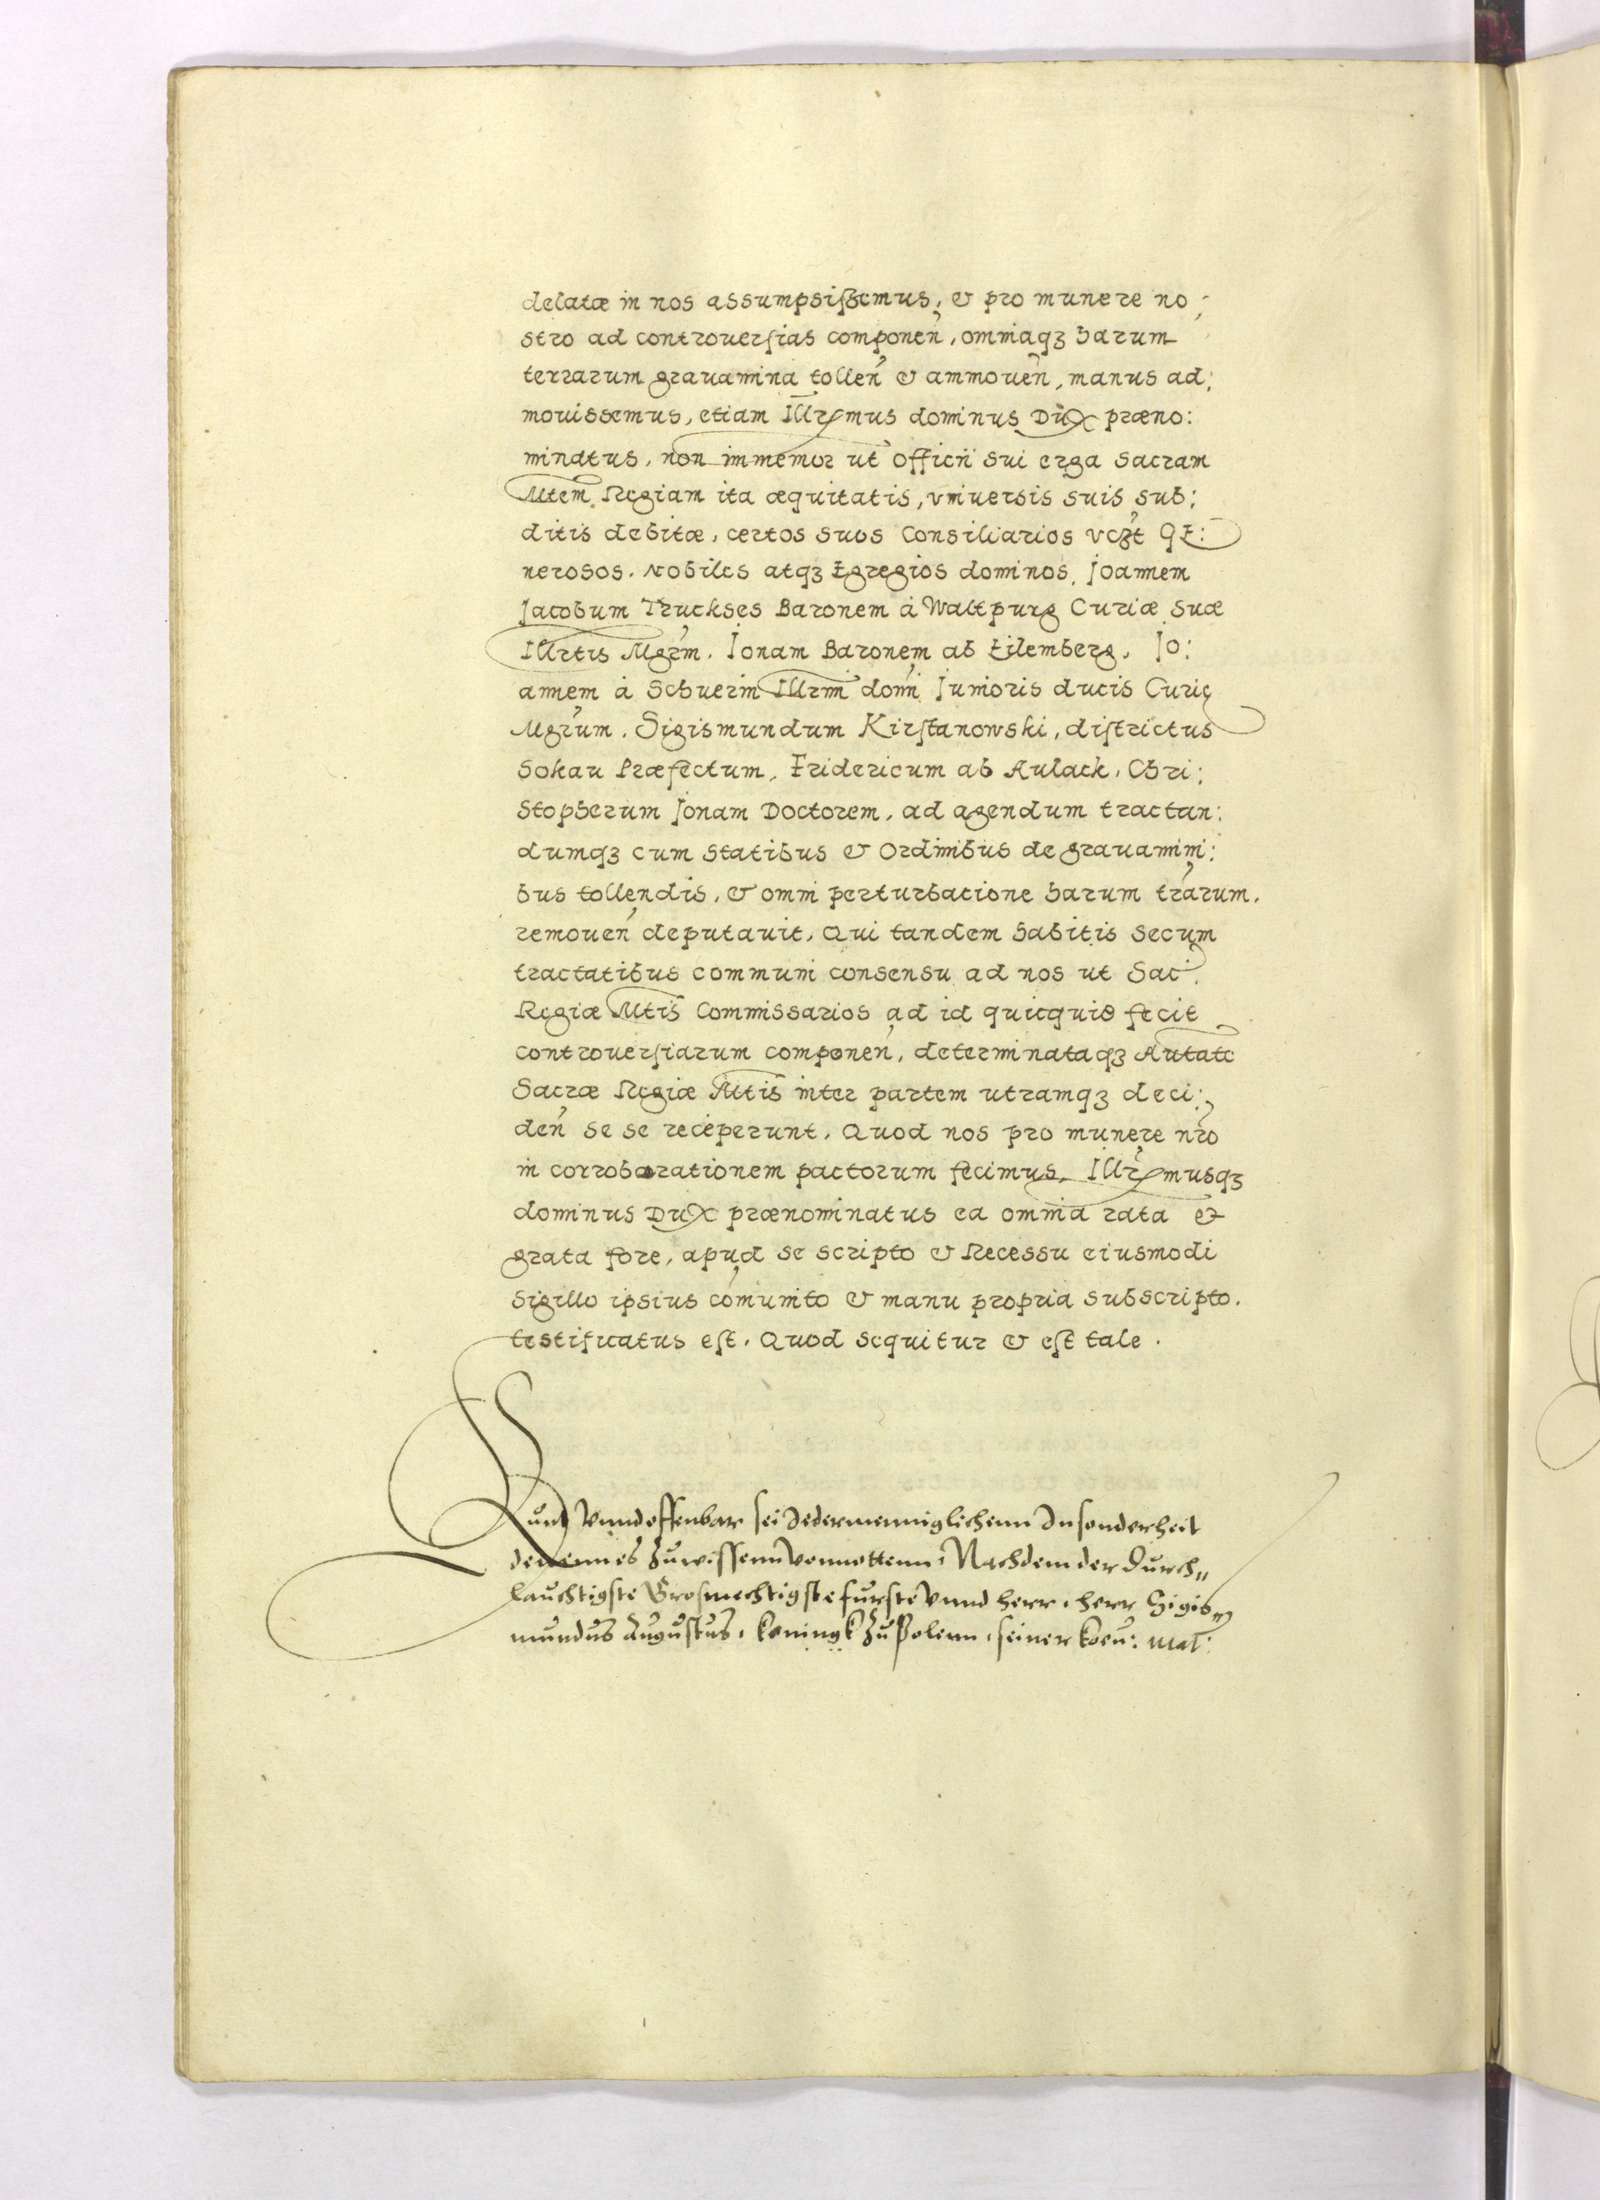 delatæ in nos assumpsissemus, & pro munere no:
stro ad controuersias componen̄, omniaqꝫ harum
terrarum grauamina tollen̄ & ammouen̄, manus ad:
mouissemus, etiam Illrmus dominus Dux præno:
minatus, non immemor ut officij sui erga sacram
Mtem Regiam ita æquitatis, vniuersis suis sub:
ditis debitæ, certos suos Consiliarios vcꝫt Ge:
nerosos. Nobiles atqꝫ Egregios dominos, Joannem
Jacobum Truckses Baronem à Waltpurg Curiæ suæ
Illrtis Mgrm. Jonam Baronem ab Eilemberg, Jo:
annem à Schuerin Illrmi domi Junioris ducis Curię
Mgrum. Sigismundum Kirstanowski, districtus
Sokau Præfectum, Fridericum ab Aulack, Chri:
stopherum Jonam Doctorem, ad agendum tractan:
dumqꝫ cum statibus & Ordinibus de grauamini:
bus tollendis, & omni perturbatione harum trarum,
remouen̄ deputauit, Qui tandem habitis secum
tractatibus communi consensu ad nos ut Sac.
Regiæ Mtis Commissarios ad id quicquid fecit
controuersiarum componen̄, determinataqꝫ Autate
Sacræ Regiæ Mtis inter partem utramqꝫ deci:
den̄ se se receperunt. Quod nos pro munere nro
in corroborationem pactorum fecimus, Illrmusqꝫ
dominus Dux prænominatus ea omnia rata &
grata fore, apud se scripto & Recessu eiusmodi
Sigillo ipsius com̄unito & manu propria subscripto.
testificatus est. Quod sequitur & est tale.
Kunt vnnd offenbar sei Jedermenniglichenn Insonderheit
denennes zuwissenn vonnottenn, Nachdem der Durch„
lauchtigste Grosmechtigste furste vnnd herr, herr Sigis„
mundus Augustus, koningk zu Polenn, seiner koen: Mat: